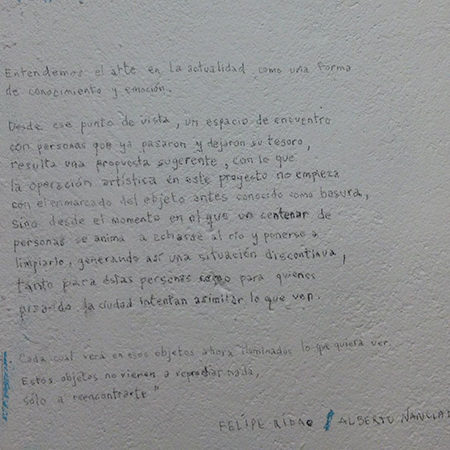 Entendemos el arte en la actualidad como una forma
de conocimiento y emoción.
Desde ese punto de vista, un espacio de encuentro
con personas que ya pasaron y dejaron su tesoro,
resulta una propuesta sugerente, con lo que
la operación artística en este proyecto no empieza
con el enmarcado del objeto antes conocido como basura,
sino desde el momento en el que un centenar de
personas se anima a echarse al río y ponerse a
limpiarlo, generando así una situación discontinua,
tanto para estas personas como para quienes
la ciudad intentan asimilar lo que ven.
Cada cual verá en esos objetos ahora iluminados lo que quiera ver.
Estos objetos no vienen a reprochar nada,
sólo a reencontrarte"
FELIPE / ALBERTO